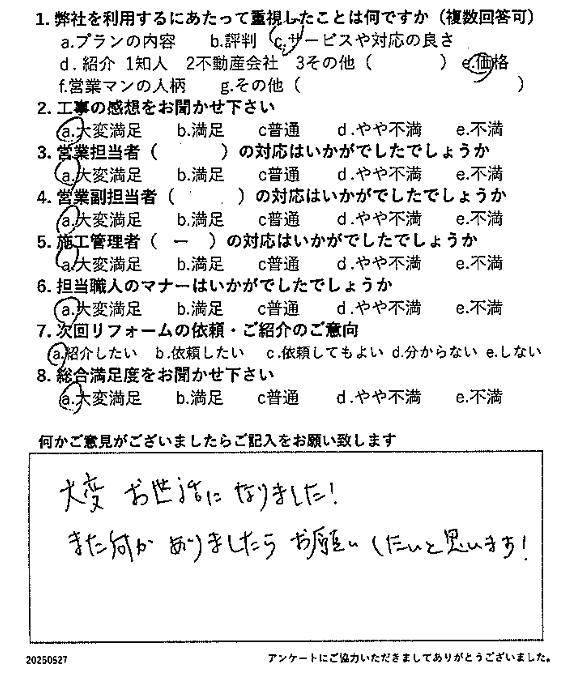 1. 弊社を利用するにあたって重視したことは何ですか（複数回答可）
a.プランの内容 b.評判 c.サービスや対応の良さ
d. 紹介 1知人 2不動産会社 3その他（ ） e.価格
f.営業マンの人柄 g.その他（ ）
2. 工事の感想をお聞かせ下さい
a.大変満足 b.満足 c普通 d.やや不満 e.不満
3. 営業担当者（ ）の対応はいかがでしたでしょうか
a.大変満足 b.満足 c普通 d.やや不満 e.不満
4. 営業副担当者（ ）の対応はいかがでしたでしょうか
a.大変満足 b.満足 c普通 d.やや不満 e.不満
5. 施工管理者（ ー ）の対応はいかがでしたでしょうか
a.大変満足 b.満足 c普通 d.やや不満 e.不満
6. 担当職人のマナーはいかがでしたでしょうか
a.大変満足 b.満足 c普通 d.やや不満 e.不満
7. 次回リフォームの依頼・ご紹介のご意向
a.紹介したい b.依頼したい c.依頼してもよい d.分からない e.しない
8. 総合満足度をお聞かせ下さい
a.大変満足 b.満足 c普通 d.やや不満 e.不満
何かご意見がございましたらご記入をお願い致します
大変 お世話に なりました!
また何か ありましたら お願い したいと思います!
20250527 アンケートにご協力いただきましてありがとうございました。